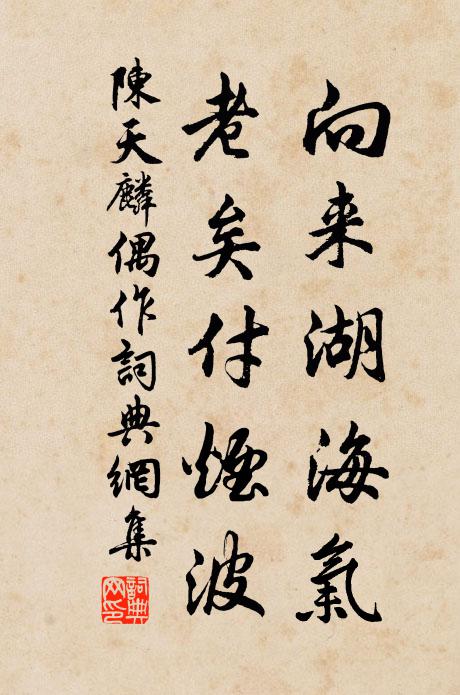 向来湖海氣
老矣付煙波
陳天麟偶作詞典網集
詞典
网印